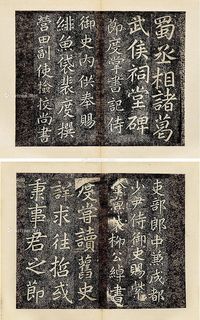 蜀丞相諸葛
武侯祠堂碑
節度掌書記侍
御史内供奉賜
緋魚袋裴度撰
營田副使檢校尚書
吏部郎中兼成都
少尹侍御史賜紫
金魚袋柳公綽書
度嘗讀舊史
詳求往哲或
秉事君之節